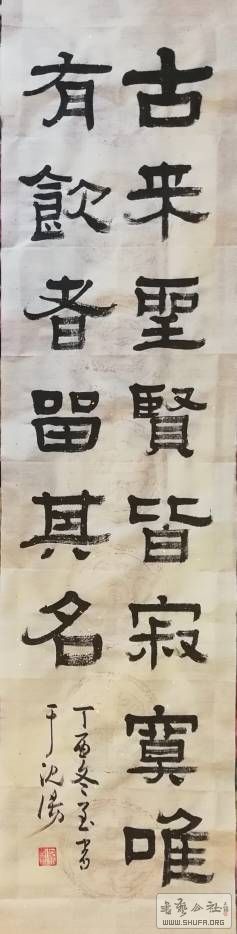 古来聖賢皆寂寞唯
有飲者留其名
丁酉冬至書
于沈陽
書藝公社
WWW.SHUFA.ORG